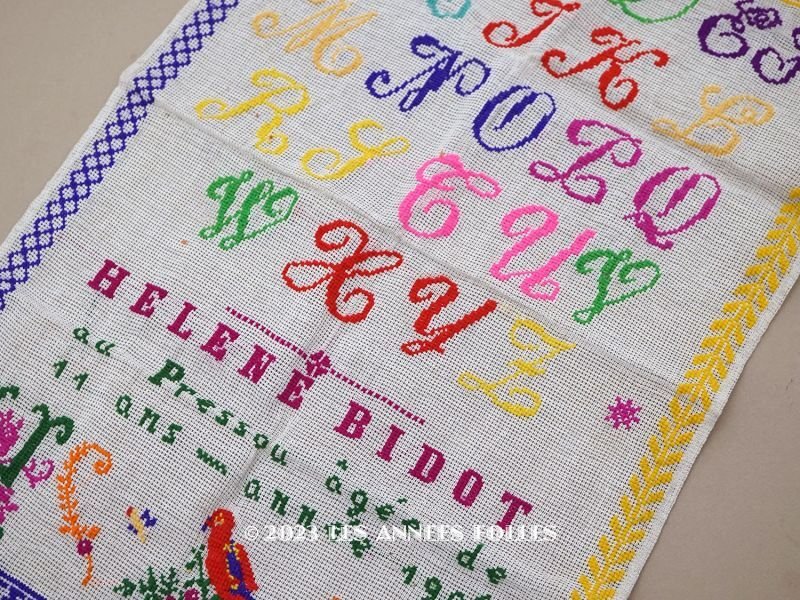 D E F
I J K L
M N O P Q
R S T U V
W X Y Z
HELENE BIDOT
au Pressou âgée de
11 ans — année
© 2023 LES ANNEES FOLLES